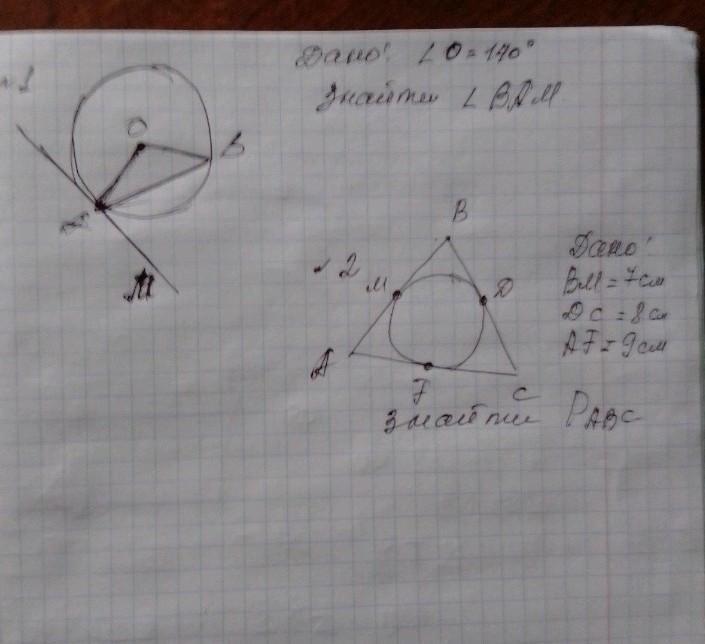 №1
Дано: ∠O = 140°
Знайти ∠BAM
O
B
A
M
№2
B
M
D
A
F
C
Дано:
BM = 7см
DC = 8см
AF = 9см
Знайти P_ABC